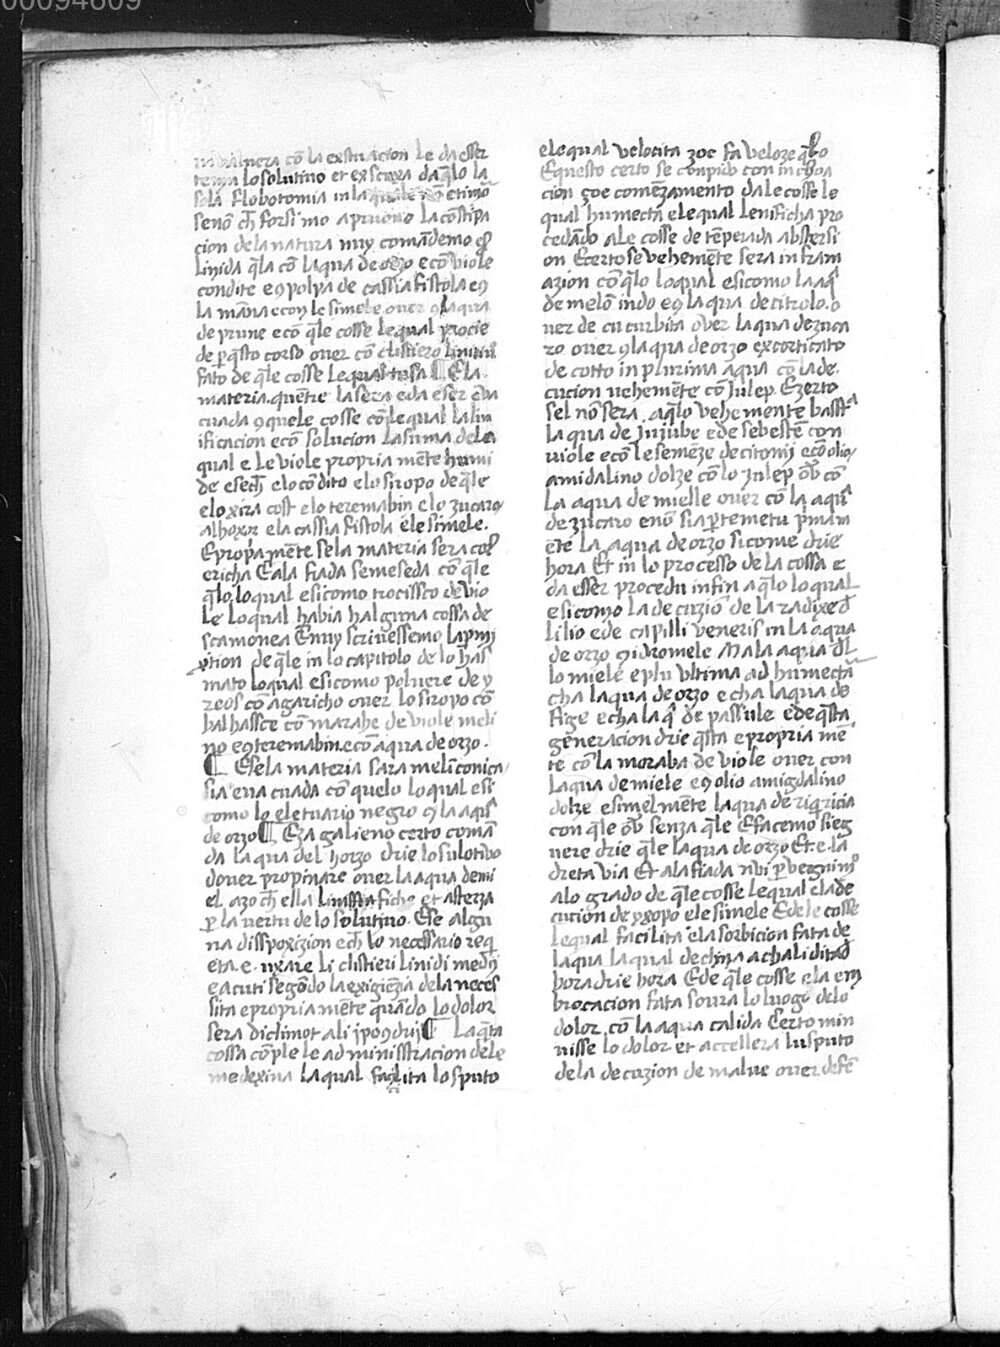 00094609
con la exstuacion le da esser
lo solutino et exscusa da q̄lo la
sola flobotomia in la
seno ch̄ forsi mo apruouo la cōstipa
cion dela natura muy comādemo q̄l
linida q̄la cō laqua de orzo e cō viole
condite e 9 polpa de cassia fistola e 9
la māna e con le simele ouer 9 laqua
de prune e cō q̄le cosse le qual procie
de p q̄sto corso ouer cō clistiero linitiuo
fato de q̄le cosse le qual tusa ¶ E la
materia quentre la sera e da eser eua
cuada 9 quele cosse cō le qual la lin
ificacion e cō solucion la suma dele
qual e le viole propria mēte humi
de e sech̄ e lo cōdito e lo siropo de q̄le
elo xira cost elo teremabin elo zucaro
alhoxor ela cassia fistola ele simele.
E propa mēte se la materia sera col
ericha E ala fiada se meseda cō q̄le
q̄lo loqual e sicomo trocissco de vio
le loqual habia halguna cossa de
scamonea E muy scriuessemo la pmi
xtion de q̄le in lo capitolo de lo has
mato loqual e sicomo poluere de y
reos cō agaricho ouer lo siropo cō
balhassce cō marabe de viole incli
no e 9 teremabin e cō aqua de orzo.
¶ E se la materia sara melīconica
sia euacuada cō quelo loqual e si
como lo eletuario negro 9 la aq̄
de orzo ¶ E za galieno certo comā
da laqua del horzo drie lo sulotiuo
douer propinare ouer la aqua demi
el azo ch̄ ella linissia ficho et asterza
p la vertu de lo solutino. E se algu
na dissposizion e ch̄ lo necessario req
eta. e. uxare li clistieri linidi medij
e acuti segōdo la exigiēzia dela neces
sita e propria mēte quādo lo dolor
sera diclinot ali ipondrij ¶ La q̄ta
cossa cōple le ad ministracion dele
medexina laqual facilita lo sputo
ele qual velocita zoe fa veloze q̄lo
E questo certo se conpido con inchoa
cion zoe comēzamento dale cosse le
qual humecta ele qual lenificha pro
cedādo ale cosse de tēperada abstersi
on E certo se vehemēte sera in flam
azion cō q̄lo loqual e sicomo la aq̄
de melō indo e 9 la qua de citrolo. o
uer de cucurbita over laqua de zuca
ro ouer 9 laqua de orzo excorticato
de cotto in plurima aqua cō la de
cucion vehemēte cō Julep. E zerto
sel nō sera aq̄lo vehemente basta
laqua de Jujube e de sebestē con
viole e cō le semēze de citonij e cō olio
amidalino dolze cō lo Julep ob̄ cō
la aqua de mielle ouer cō la aqua
de zucaro e nō sia pretemetu pmam
ēte la aqua de orzo sicome drie
hora Et in lo processo de la cossa e
da esser procedu infin a q̄lo loqual
e sicomo la decuziō de la radixe d̄
lilio e de capilli veneris in la aqua
de orzo 9 idromele Ma la aqua del
lo miele e plu vltima ad humecta
cha laqua de orzo e cha laqua de
fige e cha la q̄ de passule e de q̄sta
generacion drie q̄sta e propria mē
te cō la moraba de viole ouer con
laqua de miele e 9 olio amigdalino
dolze e simelmēte laqua de riqricia
con q̄le ob̄ senza q̄le E facemo sieg
uere drie q̄le laqua de orzo Et. e. la
dreta via Et ala fiada nbi pvegnimo
alo grado de q̄le cosse le qual e la de
cucion de yxopo ele simele E dele cosse
le qual facilita ela sorbicion fata de
laqua laqual declina a chalidita d̄
hora drie hora E de q̄le cosse e la em
brocacion fata soura lo luogo delo
dolor cō la aqua calida E certo min
uisse lo dolor et accellera lu sputo
dela decozion de malue ouer de fē